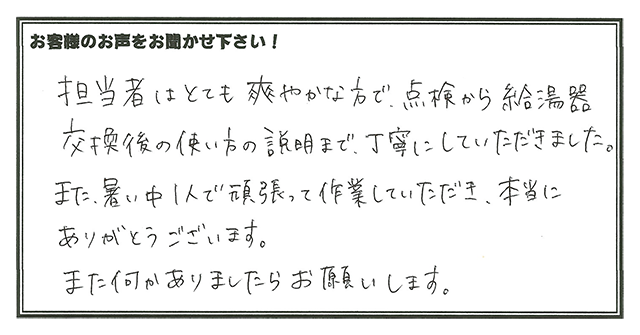 お客様のお声をお聞かせ下さい！
担当者はとても爽やかな方で、点検から給湯器
交換後の使い方の説明まで、丁寧にしていただきました。
また、暑い中1人で頑張って作業していただき、本当に
ありがとうございます。
また何かありましたらお願いします。